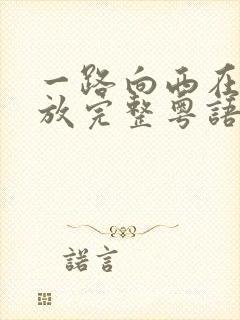 一路向西在
放完整粤語
諾言